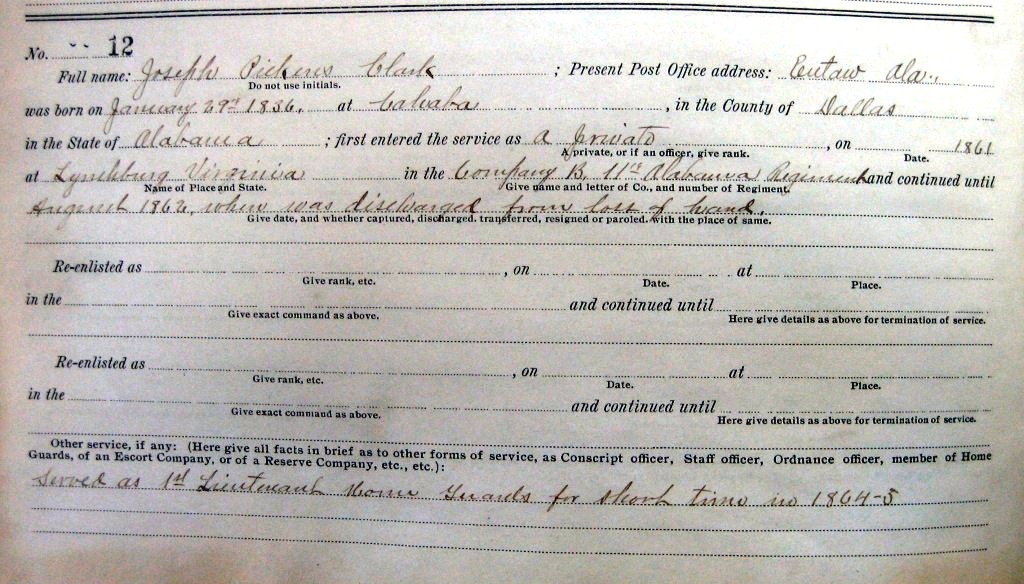 No. 12
Full name: Joseph Pickens Clark ; Present Post Office address: Eutaw Ala.,
Do not use initials.
was born on January 29th 1836, at Cahaba , in the County of Dallas
in the State of Alabama ; first entered the service as A Private , on 1861
A private, or if an officer, give rank. Date.
at Lynchburg Virginia in the Company B, 11th Alabama Regiment and continued until
Name of Place and State. Give name and letter of Co., and number of Regiment.
August 1862, when was discharged from loss of hand,
Give date, and whether captured, discharged, transferred, resigned or paroled, with the place of same.
Re-enlisted as , on at
Give rank, etc. Date. Place.
in the and continued until
Give exact command as above. Here give details as above for termination of service.
Re-enlisted as , on at
Give rank, etc. Date. Place.
in the and continued until
Give exact command as above. Here give details as above for termination of service.
Other service, if any: (Here give all facts in brief as to other forms of service, as Conscript officer, Staff officer, Ordnance officer, member of Home
Guards, of an Escort Company, or of a Reserve Company, etc., etc.):
Served as 1st Lieutenant Home Guards for short time in 1864-5